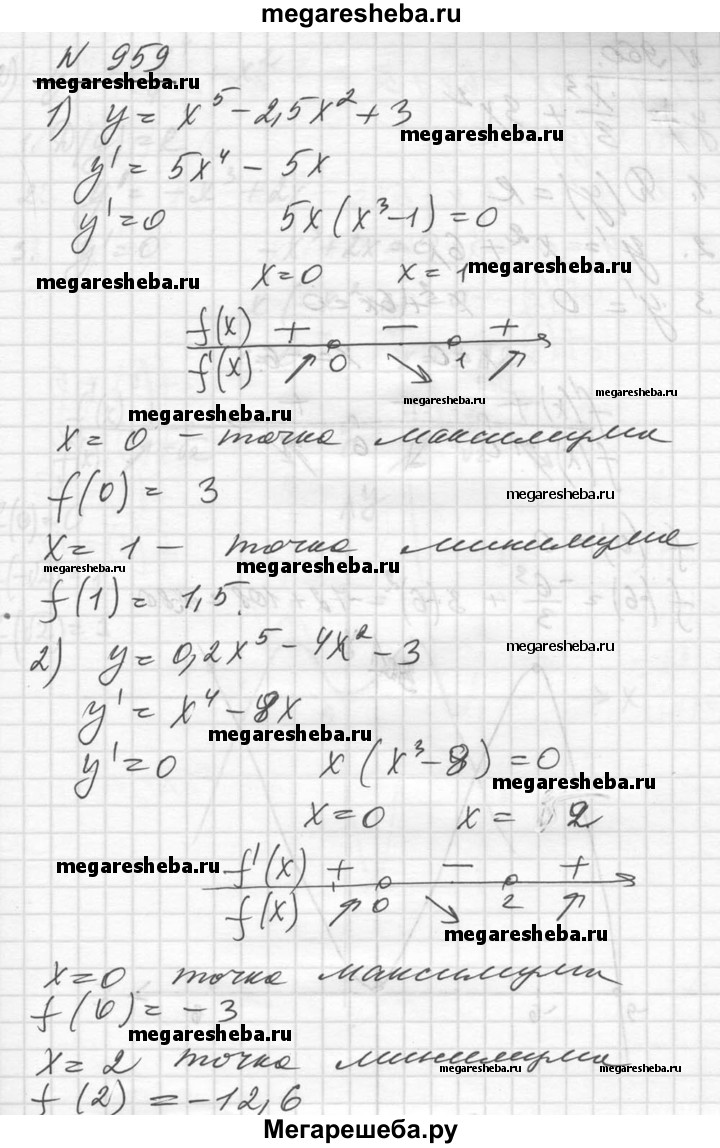 megaresheba.ru
N 959
megaresheba.ru
1) y = x⁵ - 2,5x² + 3
megaresheba.ru
y' = 5x⁴ - 5x
y' = 0 5x(x³-1) = 0
megaresheba.ru x=0 x=1 megaresheba.ru
f(x) + - +
f'(x) ↗ 0 ↘ 1 ↗
megaresheba.ru megaresheba.ru megaresheba.ru
x = 0 - точка максимума
f(0) = 3 megaresheba.ru
x = 1 - точка минимума
megaresheba.ru megaresheba.ru megaresheba.ru
f(1) = 1,5.
2) y = 0,2x⁵ - 4x² - 3 megaresheba.ru
y' = x⁴ - 8x
megaresheba.ru
y' = 0 x(x³-8) = 0
megaresheba.ru
x=0 x = 2
megaresheba.ru f'(x) + - +
f(x) ↗ 0 ↘ 2 ↗
megaresheba.ru
x=0 точка максимума
f(0) = -3
megaresheba.ru
x = 2 точка минимума
megaresheba.ru megaresheba.ru
f(2) = -12,6
Мегарешеба.ру